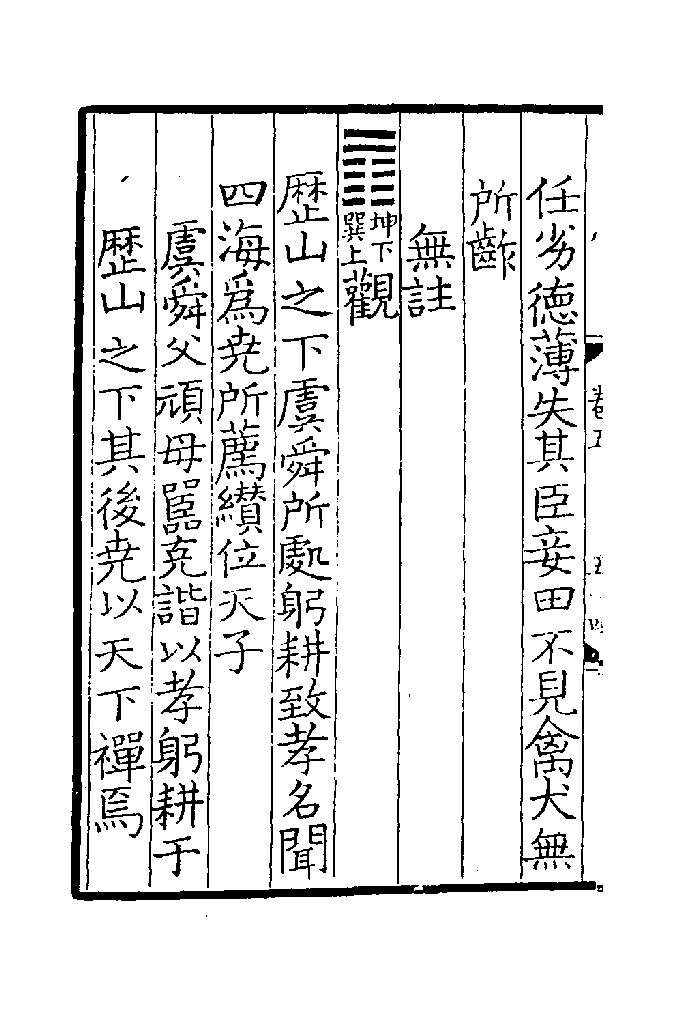 任劣德薄失其臣妾田不見禽犬無
所齚
無註
䷓坤下巽上觀
歴山之下虞舜所處躬耕致孝名聞
四海爲堯所薦纉位天子
虞舜父頑母嚚克諧以孝躬耕于
歴山之下其後堯以天下禪焉
卷五